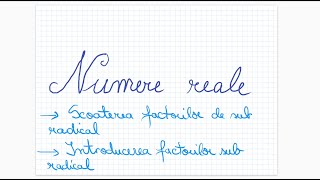 Numere reale
→ Scoaterea factorilor de sub
radical
→ Introducerea factorilor sub
radical